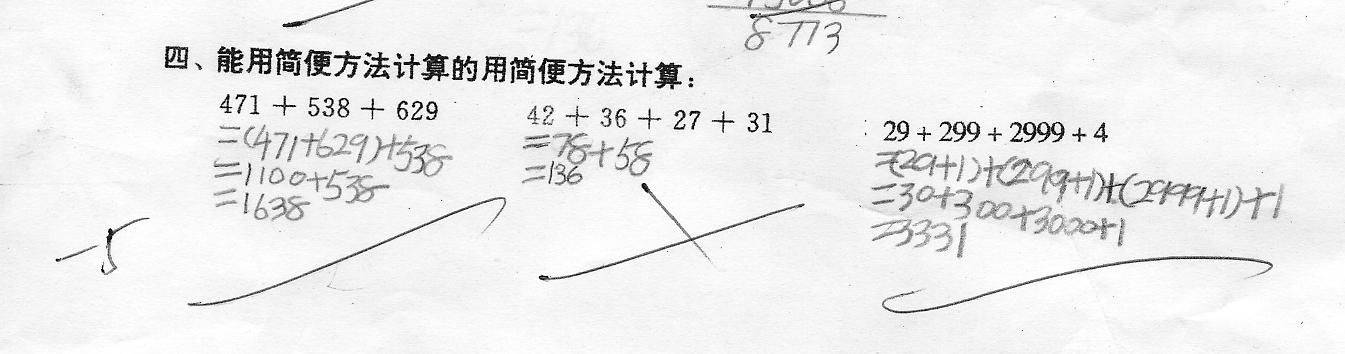 8773
四、能用简便方法计算的用简便方法计算：
471 + 538 + 629
=(471+629)+538
=1100+538
=1638
42 + 36 + 27 + 31
=78+58
=136
29 + 299 + 2999 + 4
=(29+1)+(299+1)+(2999+1)+1
=30+300+3000+1
=3331
-5